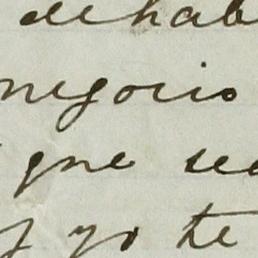 de hab
negocio
que
yo te